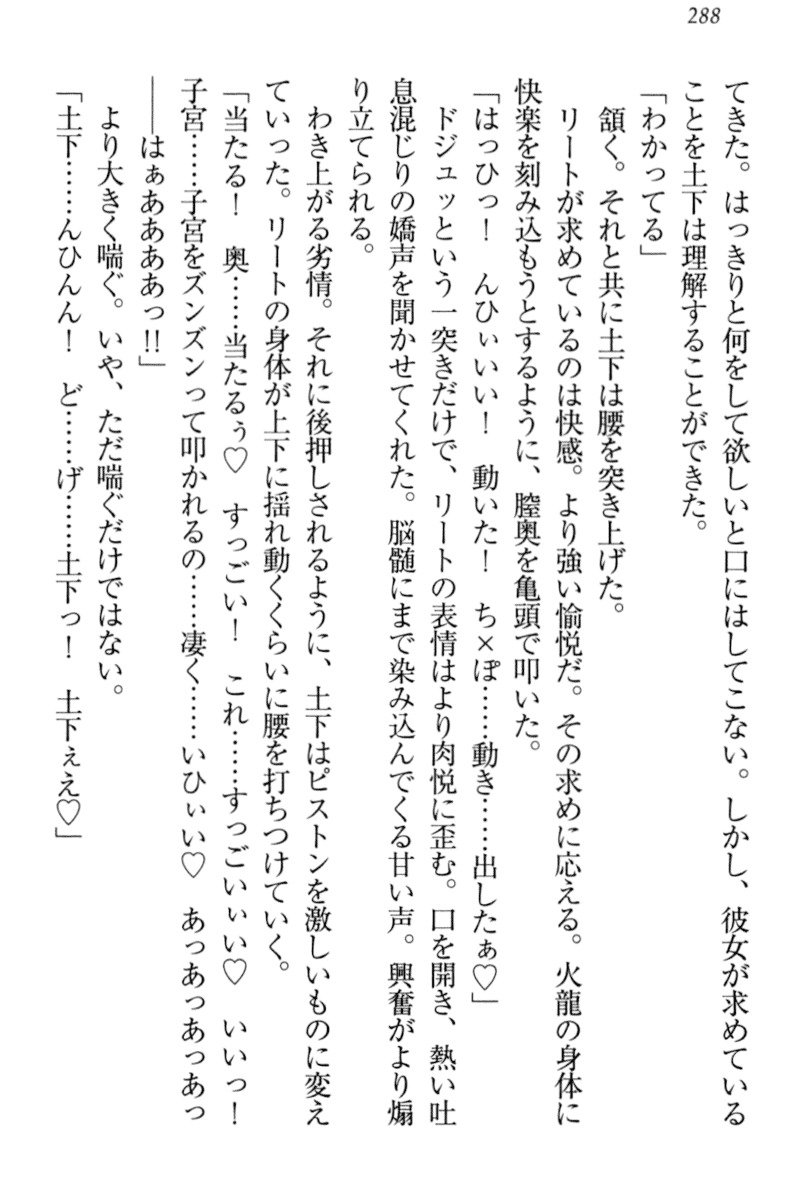 288
てきた。はっきりと何をして欲しいと口にはしてこない。しかし、彼女が求めている
ことを土下は理解することができた。
「わかってる」
　頷く。それと共に土下は腰を突き上げた。
　リートが求めているのは快感。より強い愉悦だ。その求めに応える。火龍の身体に
快楽を刻み込もうとするように、膣奥を亀頭で叩いた。
「はっひっ！　んひぃいい！　動いた！　ち×ぽ……動き……出したぁ♡」
　ドジュッという一突きだけで、リートの表情はより肉悦に歪む。口を開き、熱い吐
息混じりの嬌声を聞かせてくれた。脳髄にまで染み込んでくる甘い声。興奮がより煽
り立てられる。
　わき上がる劣情。それに後押しされるように、土下はピストンを激しいものに変え
ていった。リートの身体が上下に揺れ動くくらいに腰を打ちつけていく。
「当たる！　奥……当たるぅ♡　すっごい！　これ……すっごいぃい♡　いいっ！
子宮……子宮をズンズンって叩かれるの……凄く……いひぃい♡　あっあっあっあっ
――はぁああああっ!!」
　より大きく喘ぐ。いや、ただ喘ぐだけではない。
「土下……んひんん！　ど……げ……土下っ！　土下ぇえ♡」